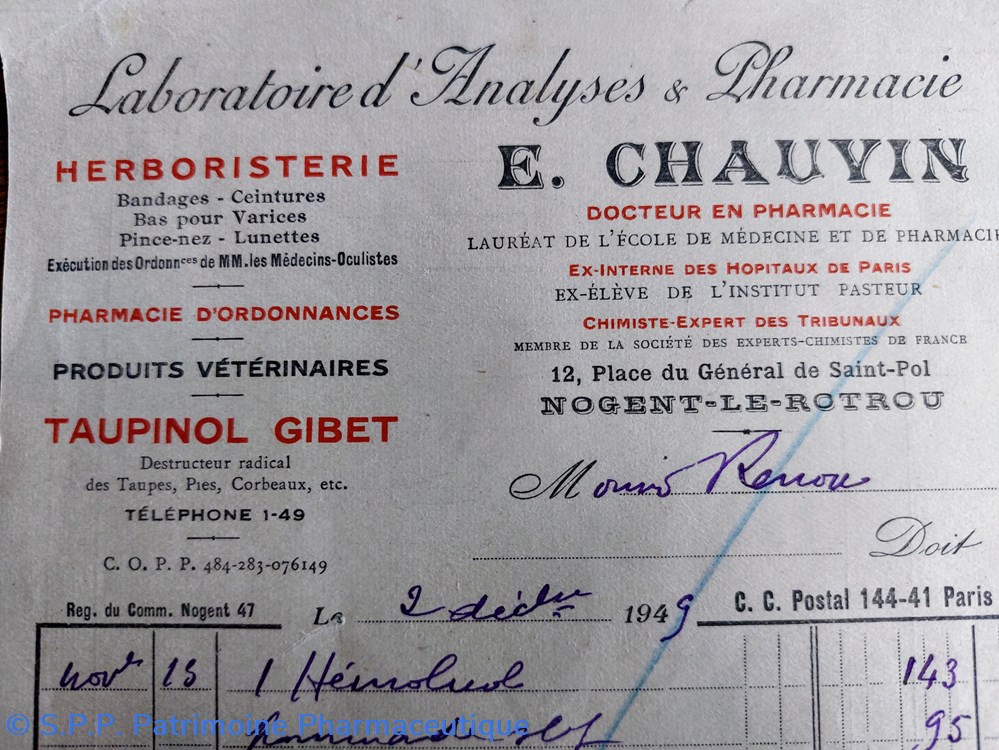 Laboratoire d'Analyses & Pharmacie
HERBORISTERIE
Bandages - Ceintures
Bas pour Varices
Pince-nez - Lunettes
Exécution des Ordonnces de MM. les Médecins-Oculistes
PHARMACIE D'ORDONNANCES
PRODUITS VÉTÉRINAIRES
TAUPINOL GIBET
Destructeur radical
des Taupes, Pies, Corbeaux, etc.
TÉLÉPHONE 1-49
C. O. P. P. 484-283-076149
Reg. du Comm. Nogent 47
E. CHAUVIN
DOCTEUR EN PHARMACIE
LAURÉAT DE L'ÉCOLE DE MÉDECINE ET DE PHARMACIE
EX-INTERNE DES HOPITAUX DE PARIS
EX-ÉLÈVE DE L'INSTITUT PASTEUR
CHIMISTE-EXPERT DES TRIBUNAUX
MEMBRE DE LA SOCIÉTÉ DES EXPERTS-CHIMISTES DE FRANCE
12, Place du Général de Saint-Pol
NOGENT-LE-ROTROU
M Renou
Doit
Le 2 décbre 1949
C. C. Postal 144-41 Paris
novb 15 1 143
95
© S.P.P. Patrimoine Pharmaceutique